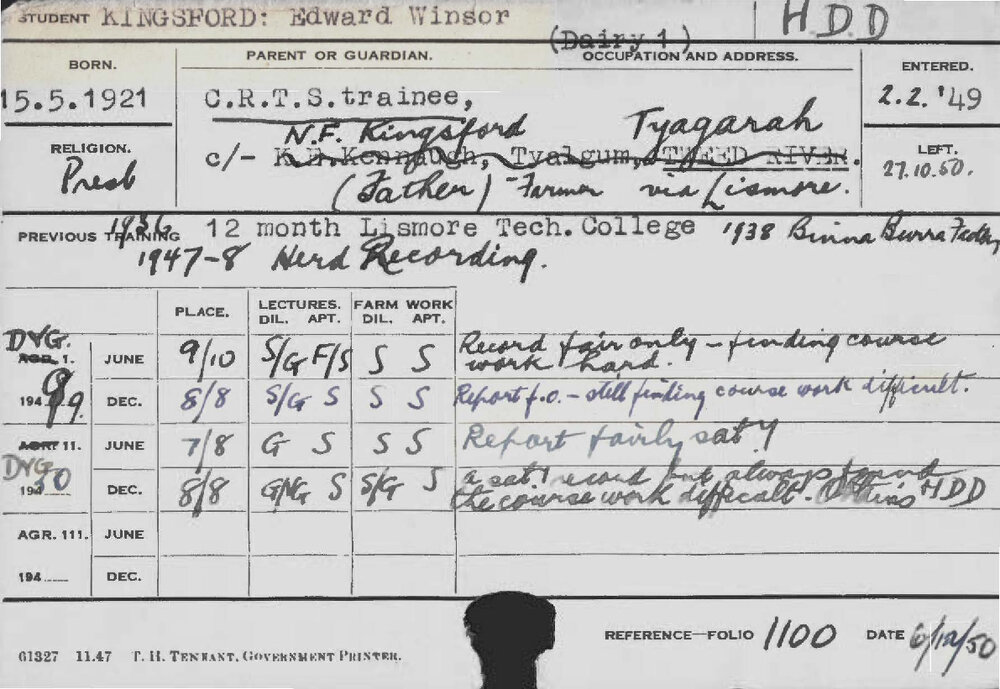 STUDENT KINGSFORD: Edward Winsor HDD
(Dairy 1)
BORN. PARENT OR GUARDIAN. OCCUPATION AND ADDRESS. ENTERED.
15.5.1921 C.R.T.S. trainee, 2.2.'49
N.F. Kingsford Tyagarah
RELIGION. c/- K.D. Kennaugh, Tyalgum, TWEED RIVER. LEFT.
Presb (Father) Farmer via Lismore. 27.10.50.
PREVIOUS TRAINING 1936 12 month Lismore Tech. College 1938 Binna Burra
1947-8 Herd Recording.
PLACE. LECTURES. FARM WORK
DIL. APT. DIL. APT.
DYG. AGR. 1. JUNE 9/10 S/G F/S S S Record fair only - finding course work hard.
194 9 DEC. 8/8 S/G S S S Report f.o. - still finding course work difficult.
AGR. 11. JUNE 7/8 G S S S Report fairly sat'y
DYG 194 50 DEC. 8/8 G/VG S S/G S a sat'y record but always found
the course work difficult. Obtains HDD
AGR. 111. JUNE
194 DEC.
REFERENCE-FOLIO 1100 DATE 6/12/50
61327 11.47 T. H. TENNANT, GOVERNMENT PRINTER.